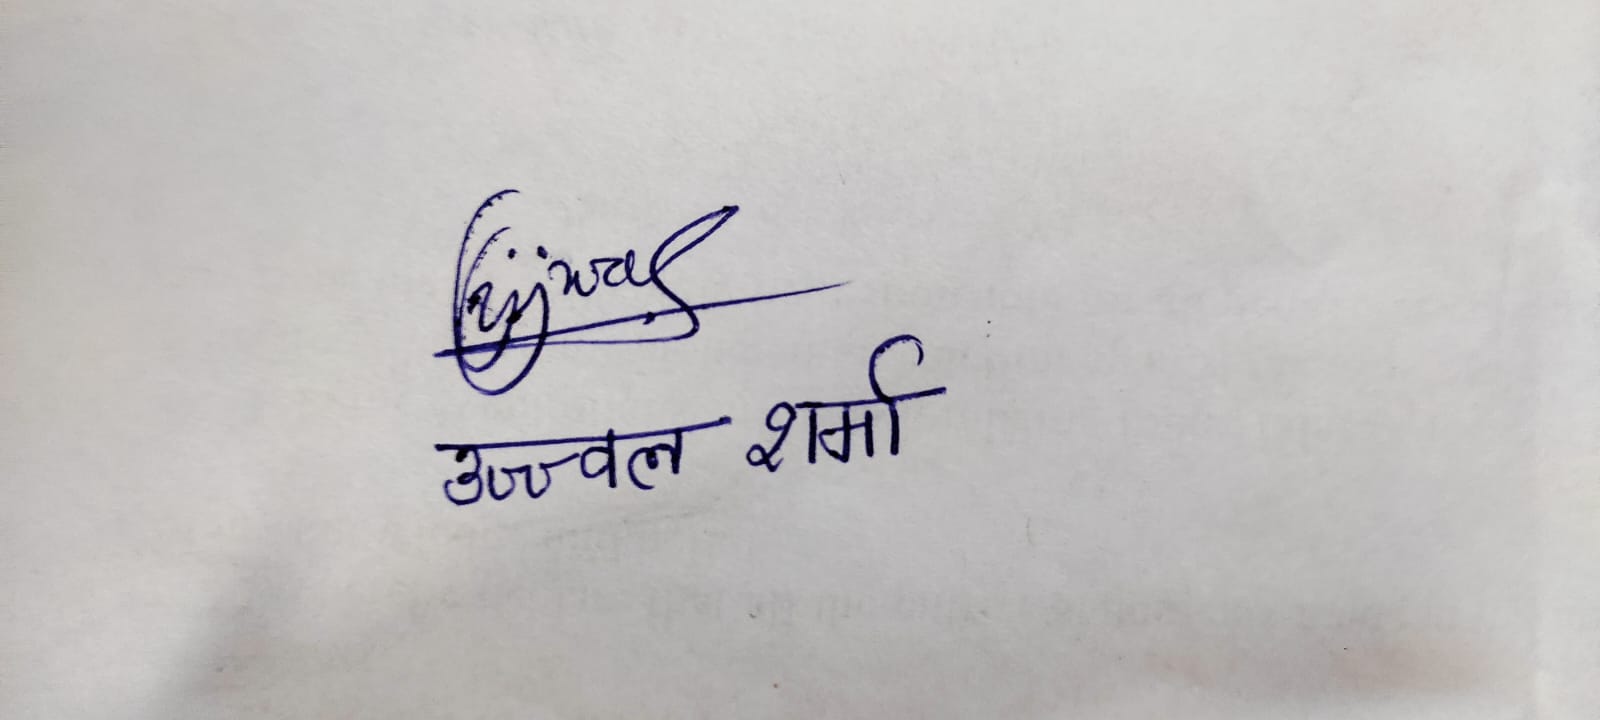 Ujjwal
उज्ज्वल शर्मा